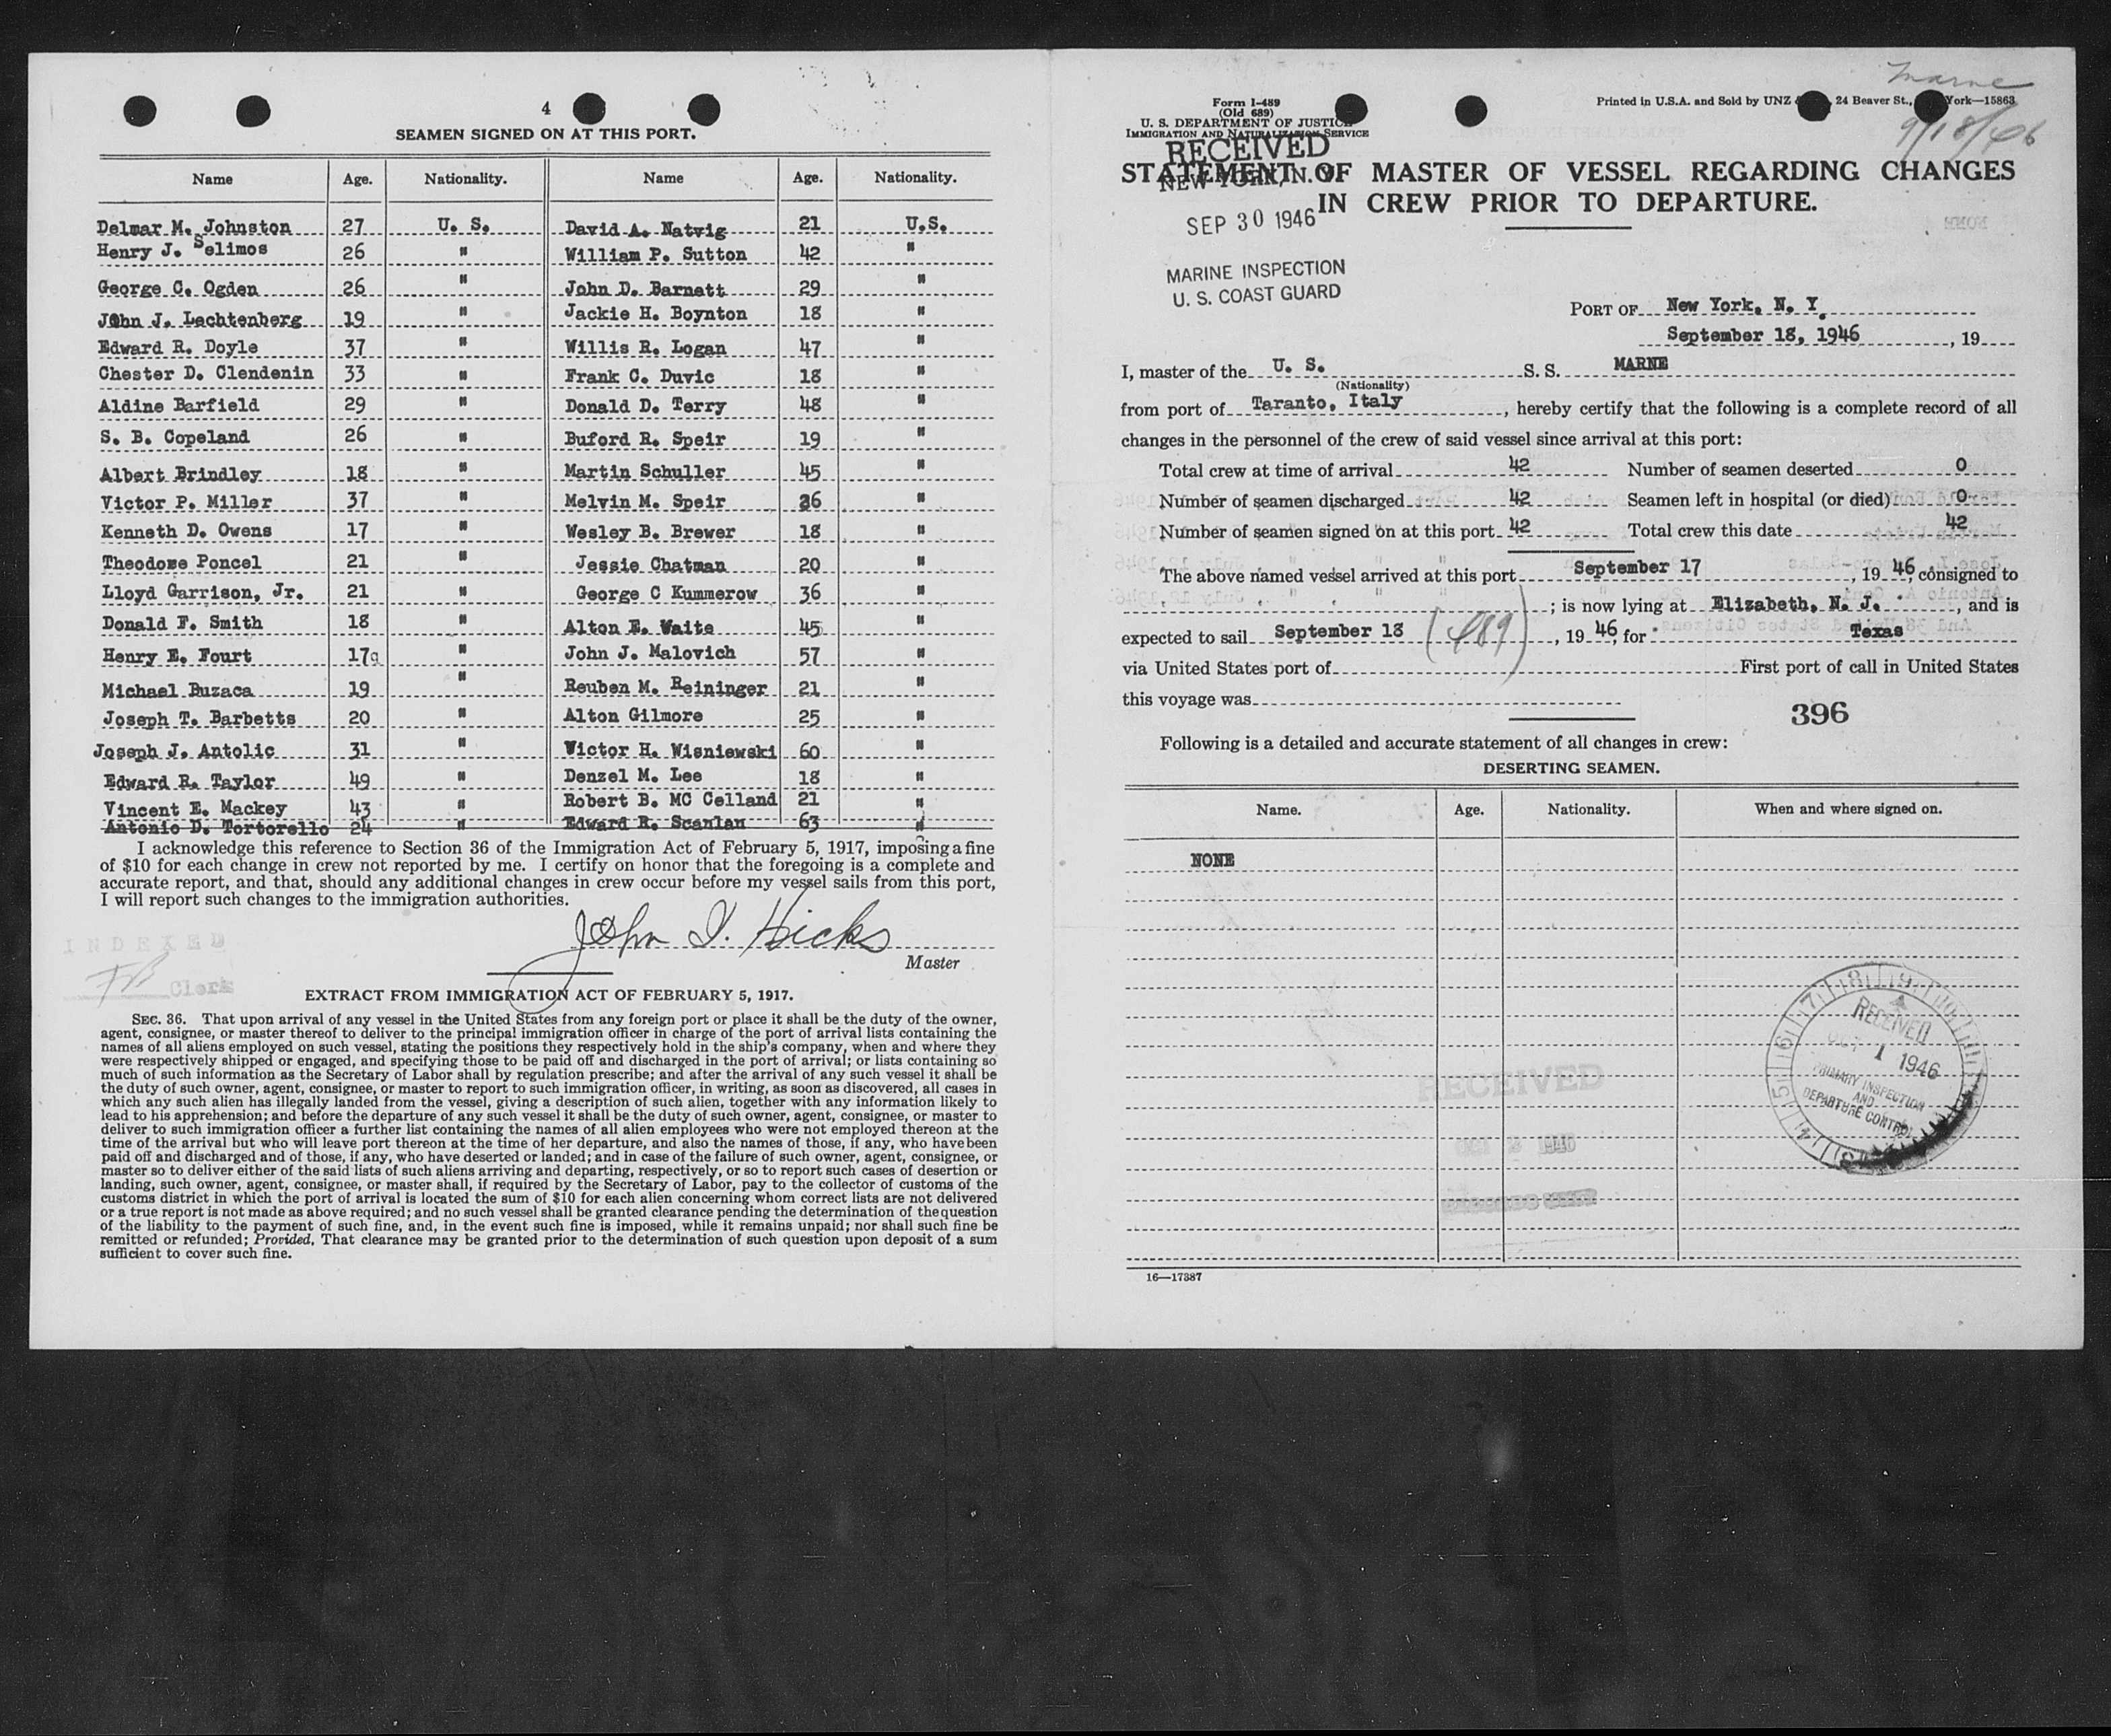 4
SEAMEN SIGNED ON AT THIS PORT.
Name Age. Nationality. Name Age. Nationality.
Delmar M. Johnston 27 U. S. David A. Natvig 21 U.S.
Henry J. Selimos 26 " William P. Sutton 42 "
George C. Ogden 26 " John D. Barnett 29 "
John J. Lechtenberg 19 " Jackie H. Boynton 18 "
Edward R. Doyle 37 " Willis R. Logan 47 "
Chester D. Clendenin 33 " Frank C. Duvic 18 "
Aldine Barfield 29 " Donald D. Terry 48 "
S. B. Copeland 26 " Buford R. Speir 19 "
Albert Brindley 18 " Martin Schuller 45 "
Victor P. Miller 37 " Melvin M. Speir 26 "
Kenneth D. Owens 17 " Wesley B. Brewer 18 "
Theodore Poncel 21 " Jessie Chatman 20 "
Lloyd Garrison, Jr. 21 " George C Kummerow 36 "
Donald F. Smith 18 " Alton E. Waite 45 "
Henry E. Fourt 17 " John J. Malovich 57 "
Michael Buzaca 19 " Reuben M. Reininger 21 "
Joseph T. Barbetts 20 " Alton Gilmore 25 "
Joseph J. Antolic 31 " Victor H. Wisniewski 60 "
Edward R. Taylor 49 " Denzel M. Lee 18 "
Vincent E. Mackey 43 " Robert B. MC Celland 21 "
Antonio D. Tortorello 24 " Edward R. Scanlan 63 "
I acknowledge this reference to Section 36 of the Immigration Act of February 5, 1917, imposing a fine
of $10 for each change in crew not reported by me. I certify on honor that the foregoing is a complete and
accurate report, and that, should any additional changes in crew occur before my vessel sails from this port,
I will report such changes to the immigration authorities.
John I. Hicks
Master
INDEXED
FB Clerk
EXTRACT FROM IMMIGRATION ACT OF FEBRUARY 5, 1917.
SEC. 36. That upon arrival of any vessel in the United States from any foreign port or place it shall be the duty of the owner,
agent, consignee, or master thereof to deliver to the principal immigration officer in charge of the port of arrival lists containing the
names of all aliens employed on such vessel, stating the positions they respectively hold in the ship's company, when and where they
were respectively shipped or engaged, and specifying those to be paid off and discharged in the port of arrival; or lists containing so
much of such information as the Secretary of Labor shall by regulation prescribe; and after the arrival of any such vessel it shall be
the duty of such owner, agent, consignee, or master to report to such immigration officer, in writing, as soon as discovered, all cases in
which any such alien has illegally landed from the vessel, giving a description of such alien, together with any information likely to
lead to his apprehension; and before the departure of any such vessel it shall be the duty of such owner, agent, consignee, or master to
deliver to such immigration officer a further list containing the names of all alien employees who were not employed thereon at the
time of the arrival but who will leave port thereon at the time of her departure, and also the names of those, if any, who have been
paid off and discharged and of those, if any, who have deserted or landed; and in case of the failure of such owner, agent, consignee, or
master so to deliver either of the said lists of such aliens arriving and departing, respectively, or so to report such cases of desertion or
landing, such owner, agent, consignee, or master shall, if required by the Secretary of Labor, pay to the collector of customs of the
customs district in which the port of arrival is located the sum of $10 for each alien concerning whom correct lists are not delivered
or a true report is not made as above required; and no such vessel shall be granted clearance pending the determination of the question
of the liability to the payment of such fine, and, in the event such fine is imposed, while it remains unpaid; nor shall such fine be
remitted or refunded; Provided, That clearance may be granted prior to the determination of such question upon deposit of a sum
sufficient to cover such fine.
Marne
9/18/46
Form I-489
(Old 689)
U. S. DEPARTMENT OF JUSTICE
IMMIGRATION AND NATURALIZATION SERVICE
Printed in U.S.A. and Sold by UNZ 24 Beaver St., York—15863
RECEIVED
NEW YORK, N.Y.
SEP 30 1946
MARINE INSPECTION
U. S. COAST GUARD
STATEMENT OF MASTER OF VESSEL REGARDING CHANGES
IN CREW PRIOR TO DEPARTURE.
PORT OF New York, N. Y.
September 18, 1946, 19
I, master of the U. S. S. S. MARNE
(Nationality)
from port of Taranto, Italy, hereby certify that the following is a complete record of all
changes in the personnel of the crew of said vessel since arrival at this port:
Total crew at time of arrival 42 Number of seamen deserted 0
Number of seamen discharged 42 Seamen left in hospital (or died) 0
Number of seamen signed on at this port 42 Total crew this date 42
The above named vessel arrived at this port September 17, 19 46, consigned to
; is now lying at Elizabeth, N. J., and is
expected to sail September 18 (489), 19 46, for Texas
via United States port of First port of call in United States
this voyage was
396
Following is a detailed and accurate statement of all changes in crew:
DESERTING SEAMEN.
Name. Age. Nationality. When and where signed on.
NONE
RECEIVED
OCT 1 1946
PRIMARY INSPECTION
AND
DEPARTURE CONTROL
RECEIVED
OCT 2 1946
16—17387